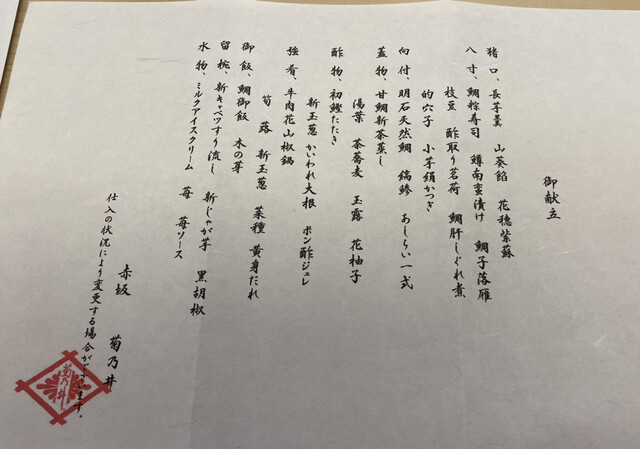 御献立
猪口、長芋羹　山葵餡　花穂紫蘇
八寸、鯛粽寿司　鱒南蛮漬け　鯛子落雁
枝豆　酢取り茗荷　鯛肝しぐれ煮
的穴子　小芋絹かつぎ
向付、明石天然鯛　縞鯵　あしらい一式
蓋物、甘鯛新茶蒸し
湯葉　茶蕎麦　玉露　花柚子
酢物、初鰹たたき
新玉葱　かいわれ大根　ポン酢ジュレ
強肴、牛肉花山椒鍋
筍　蕗　新玉葱　菜種　黄身だれ
御飯、鯛御飯　木の芽
留椀、新キャベツすり流し　新じゃが芋　黒胡椒
水物、ミルクアイスクリーム　苺　苺ソース
赤坂　菊乃井
仕入の状況により変更する場合がございます。
菊乃井